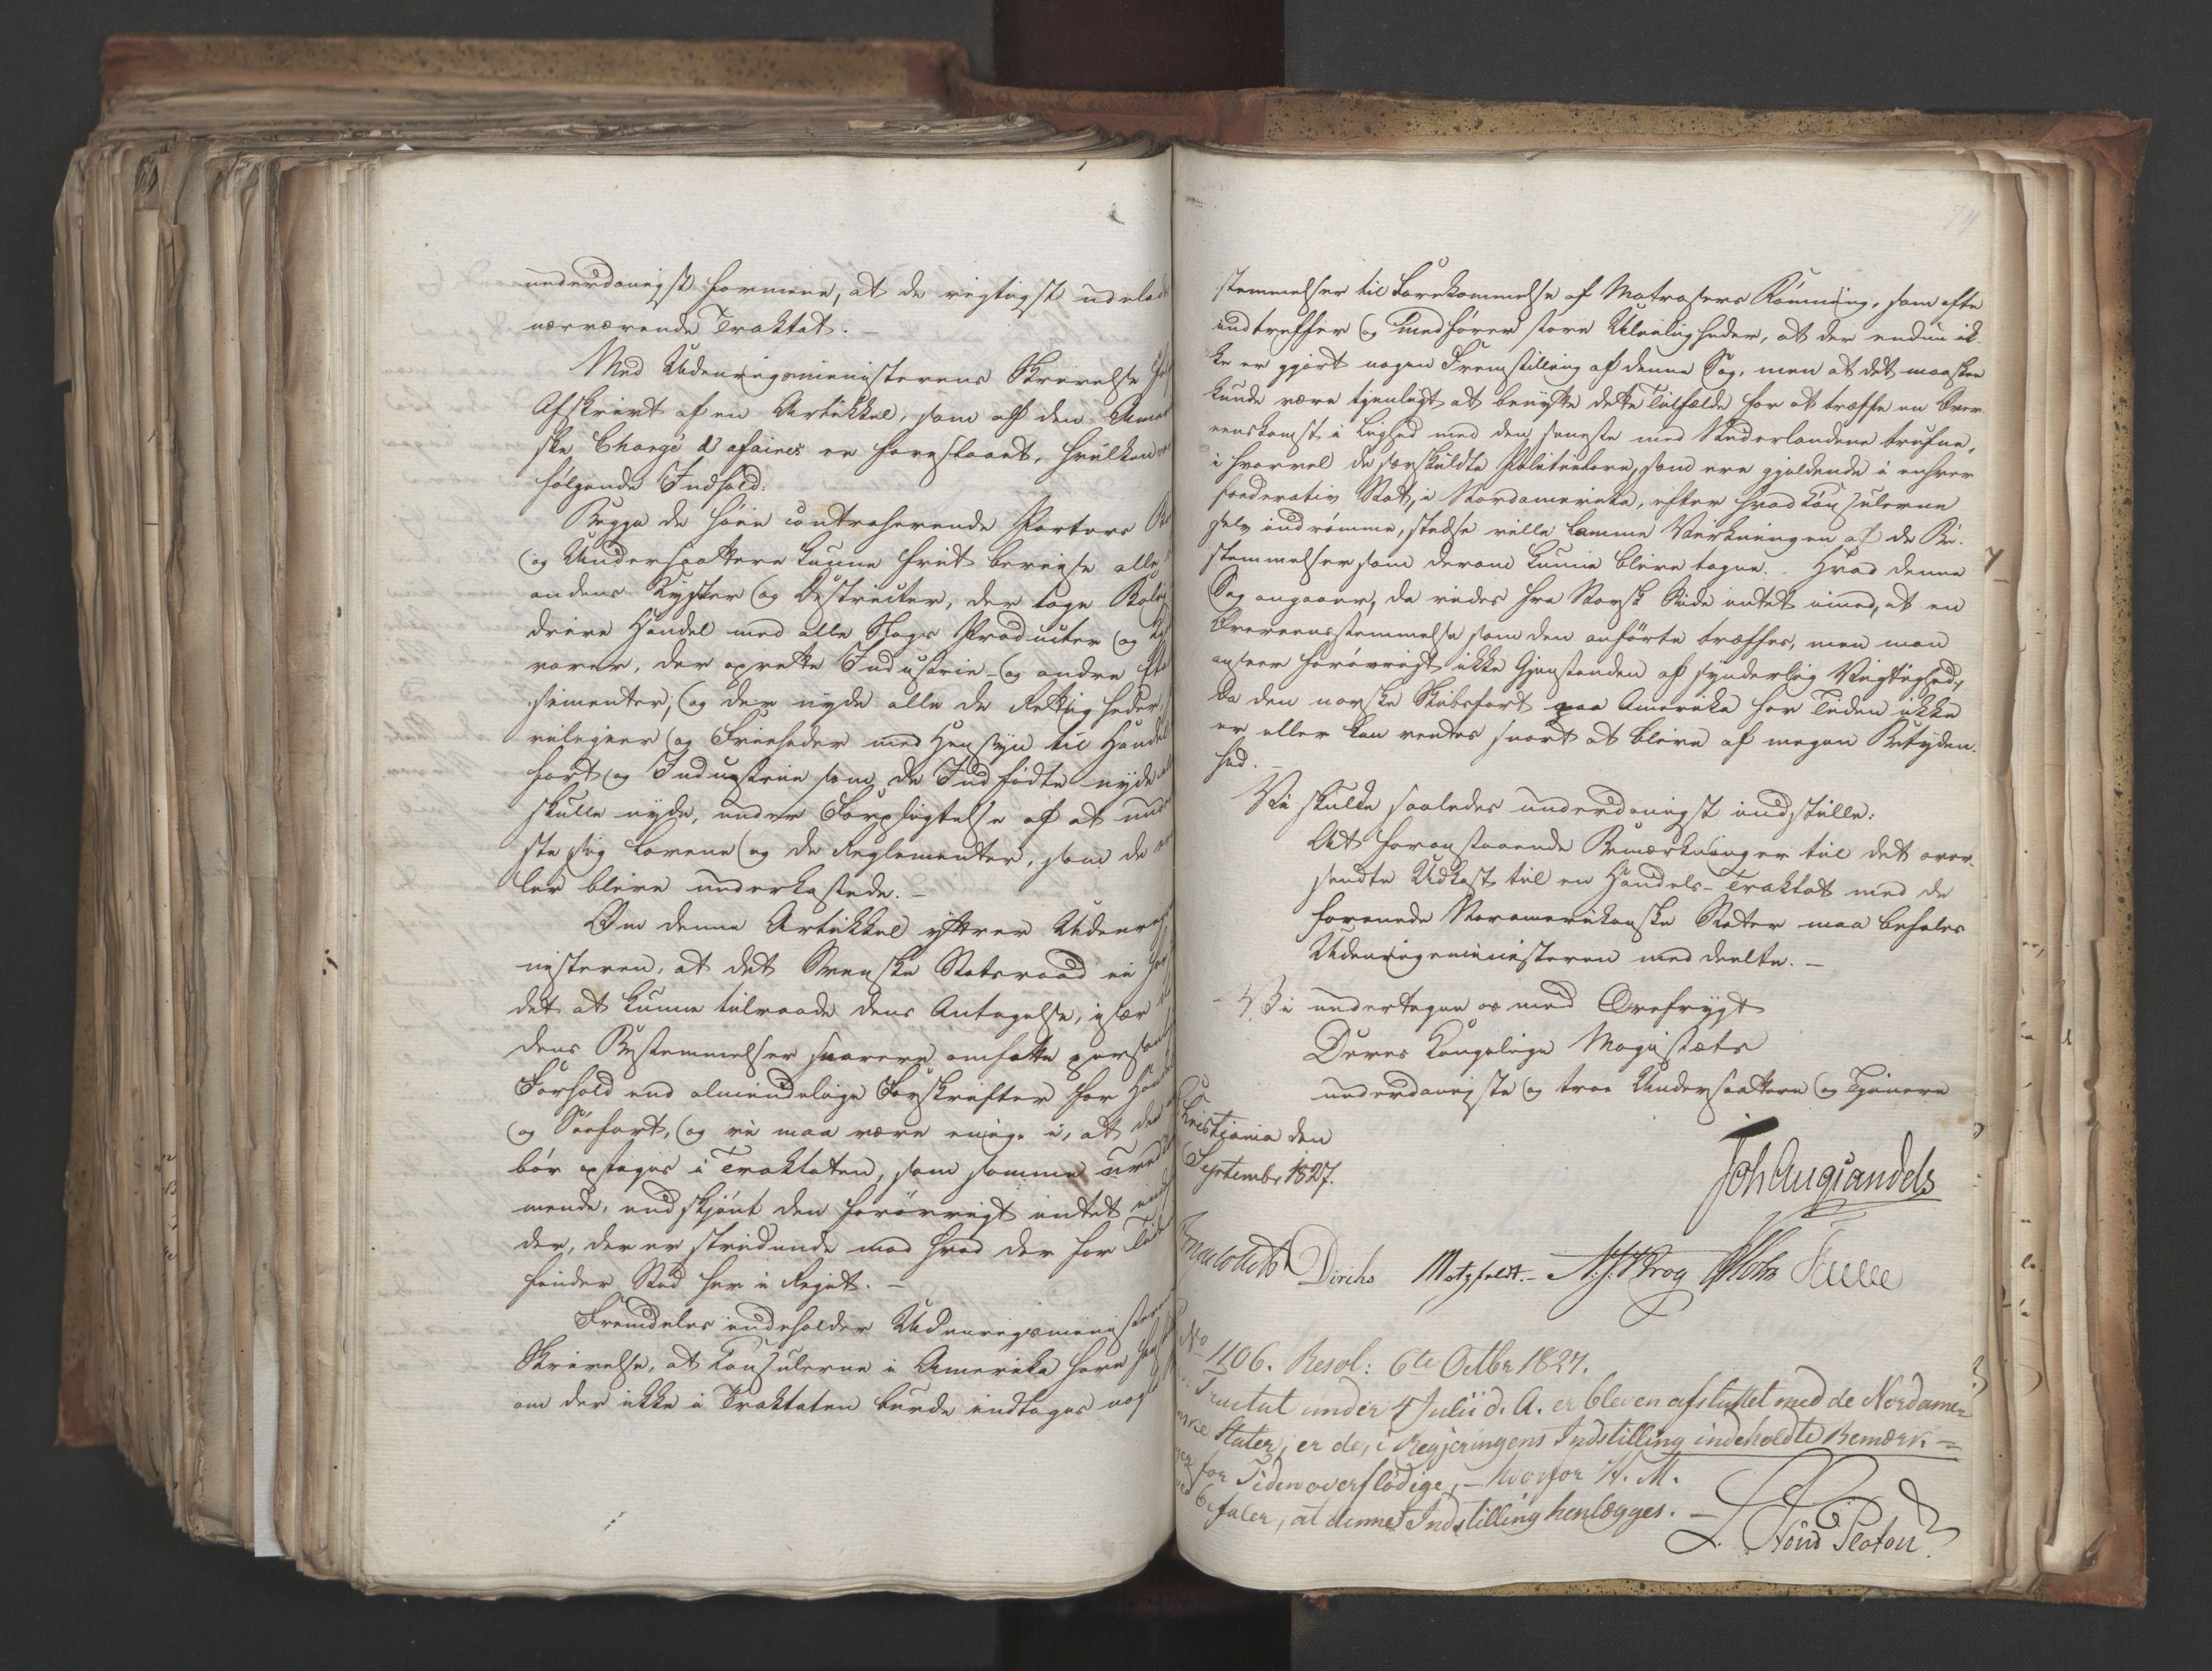 underdanigst formene, at de rigtigst udelad
nærværende Traktat. –
Med Udenrigsministerens Skrivelse
Afskrivt af en Artikkel, som af den Ame
ske Chargé d'afaires er foreslaaet, hvilken
følgende Indhold:
Begge de høie contraherende Parters
og Undersaattere kunne frit bereise alle
andens Kyster og Districter, der tage Bolig
drive Handel med alle Slags Producter og
varer, der oprette Industrie- og andre Eta
simenter, og der nyde alle de Rettigheder,
vilegier og Friheder med Hensyn til Handel
fart og Industrie som de Indfødte nyde
skulle nyde, under Forpligtelse af at unde
ste sig Lovene og de Reglementer, som de
ler blive underkastede. –
Om denne Artikkel yttrer Udenrigs
nisteren, at det Svenske Statsraad ei
det at kunne tilraade dens Antagelse, især
dens Bestemmelser snarere omfatte person
Forhold end almindelige Forskrifter for Hand
og Søefart, og vi maa være enige i, at den
bør optages i Traktaten, som samme
mende, endskjønt den forøvrigt intet
der, der er stridende mod hvad der for Tide
finder Sted her i Riget. –
Fremdeles indeholder Udenrigsministerens
Skrivelse, at Consulerne i Amerika have
om der ikke i Traktaten burde indtages nog
stemmelser til Forekommelse af Matrosers Rømning, som ofte
indtreffer og medfører store Uleiligheder, at der endnu ik-
ke er gjort nogen Fremstilling af denne Sag, men at det maaskee
kunde være tjenligt at benytte dette Tilfælde for at træffe en Over-
eenskomst i Lighed med den seneste med Nederlandene trufne,
i hvorvel de særskildte Politielove, som ere gjeldende i enhver
foederativ Stat i Nordamerika, efter hvad Consulerne
selv indrømme, stedse ville lamme Virkningen af de Be-
stemmelser som derom kunne blive tagne. Hvad denne
Sag angaaer, da vides fra Norsk Side intet imod, at en
Overeensstemmelse som den anførte træffes, men man
anseer forøvrigt ikke Gjenstanden af synderlig Vigtighed,
da den norske Skibsfart paa Amerika for Tiden ikke
er eller kan ventes snart at blive af megen Betyden-
hed. –
Vi skulde saaledes underdanigst indstille:
At foranstaaende Bemærkninger til det over-
sendte Udkast til en Handels-Traktat med de
forenede Noramerikanske Stater maa befales
Udenrigsministeren meddeelte. –
Vi undertegne os med Ærefrygt
Deres Kongelige Majestæts
underdanigste og troe Undersaattere og Tjenere
Christiania den
September 1827.
Joh Aug Sandels
Diriks Motzfeldt. – Krog Holst
No 1106. Resol: 6te Octbr 1827.
Tractat under 4 Julii d. A. er bleven afsluttet med de Nordameri
Stater, er de, i Regjeringens Indstilling indeholdte Bemærk-
for Tiden overflødige, – hvorfor H. M.
befaler, at denne Indstilling henlægges. –
Stoud Platou